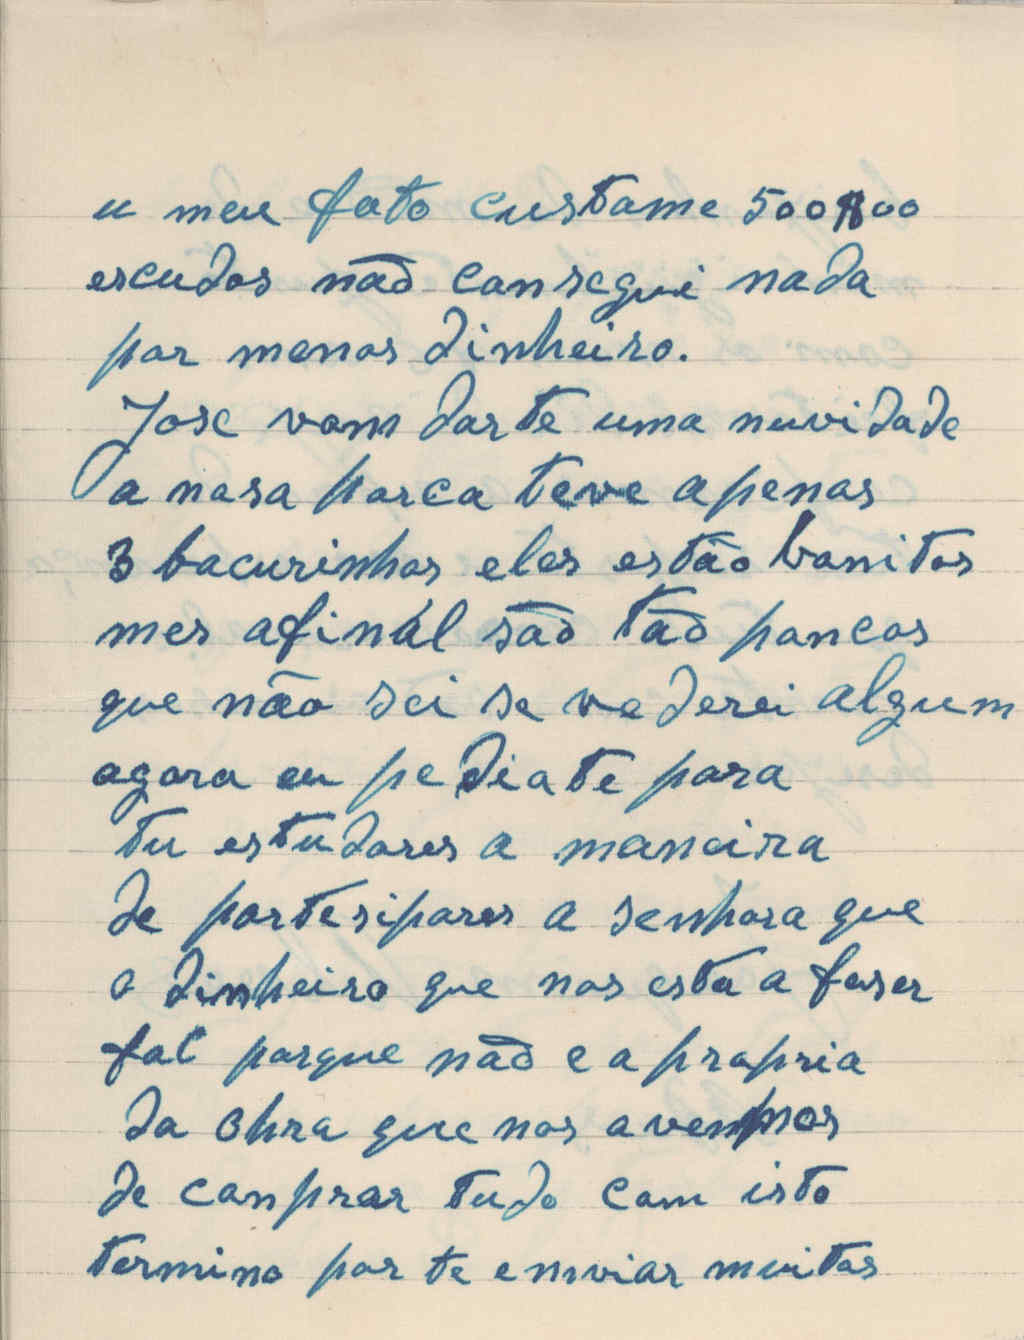 u meu fato custame 500$00
escudos não consegui nada
por menos dinheiro.
Jose vom darte uma nuvidade
a nosa porca teve apenas
3 bacurinhos eles estão bonitos
mes afinál são tão poucos
que não sei se vederei algum
agora eu pediate para
tu estudares a maneira
de partesipares a senhora que
o dinheiro que nos esta a faser
fal porque não e a propria
da ohra que nos avenmos
de conprar tudo com isto
termino por te enviar muitos